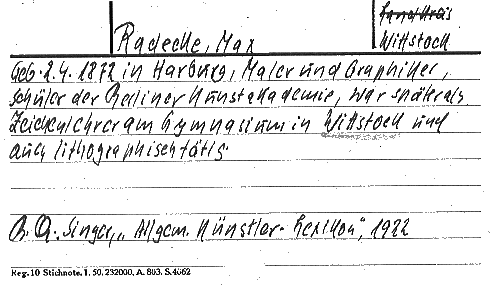 Landkreis
Radecke, Max Wittstock
Geb. 2.4. 1872 in Harburg, Maler und Graphiker,
Schüler der Berliner Kunstakademie, war später als
Zeichenlehrer am Gymnasium in Wittstock und
auch lithographisch tätig.
Singer, „Allgem. Künstler-Lexikon", 1922
Reg. 10 Stichnote. 1. 50. 232000. A. 803. S. 4662